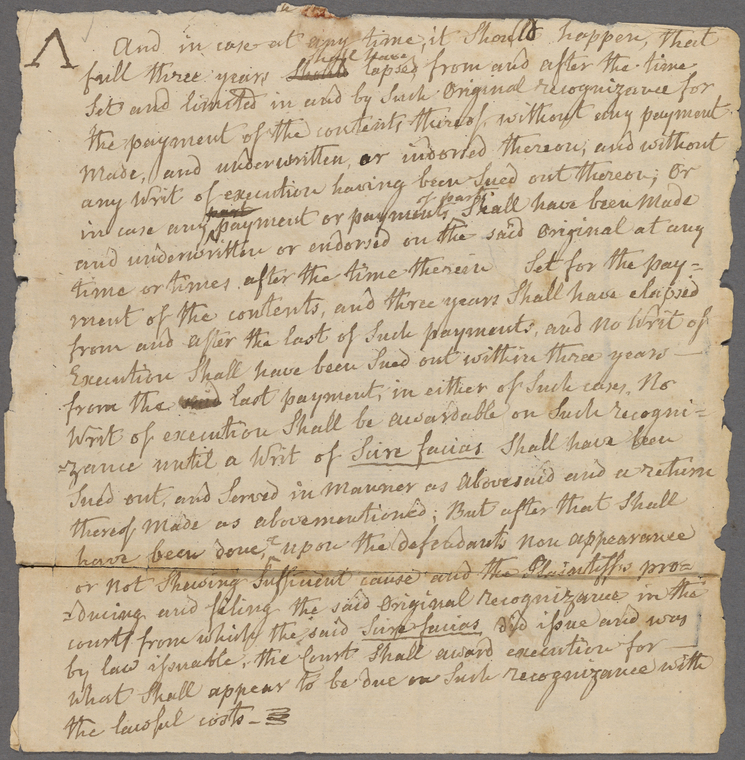 And in case at any time, it Should happen, that
shall have
full three years Should lapsed from and after the time
Set and limited in and by Such Original recognizance for
the payment of the contents thereof, without any payment
Made, and underwritten, or indorsed thereon; and without
any Writ of execution having been Sued out thereon; Or
of part
in case any part payment or payments Shall have been Made
and underwritten or endorsed on the said Original at any
time or times after the time therein Set for the pay=
ment of the contents, and three years Shall have elapsed
from and after the last of Such payments, and No Writ of
Execution Shall have been Sued out within three years —
from the last payment, in either of Such cases, No
Writ of execution Shall be awardable on Such recogni=
=zance until a Writ of Scire facias Shall have been
Sued out, and Served in Manner as abovesaid and a return
thereof Made as abovementioned; But after that Shall
have been done, & upon the defendants non appearance
or not Shewing Sufficient cause and the Plaintiffs pro=
=ducing and filing the said Original recognizance in the
court from which the said Scire facias did issue and was
by law issuable, the Court Shall award execution for —
what Shall appear to be due on Such recognizance with
the lawful costs —